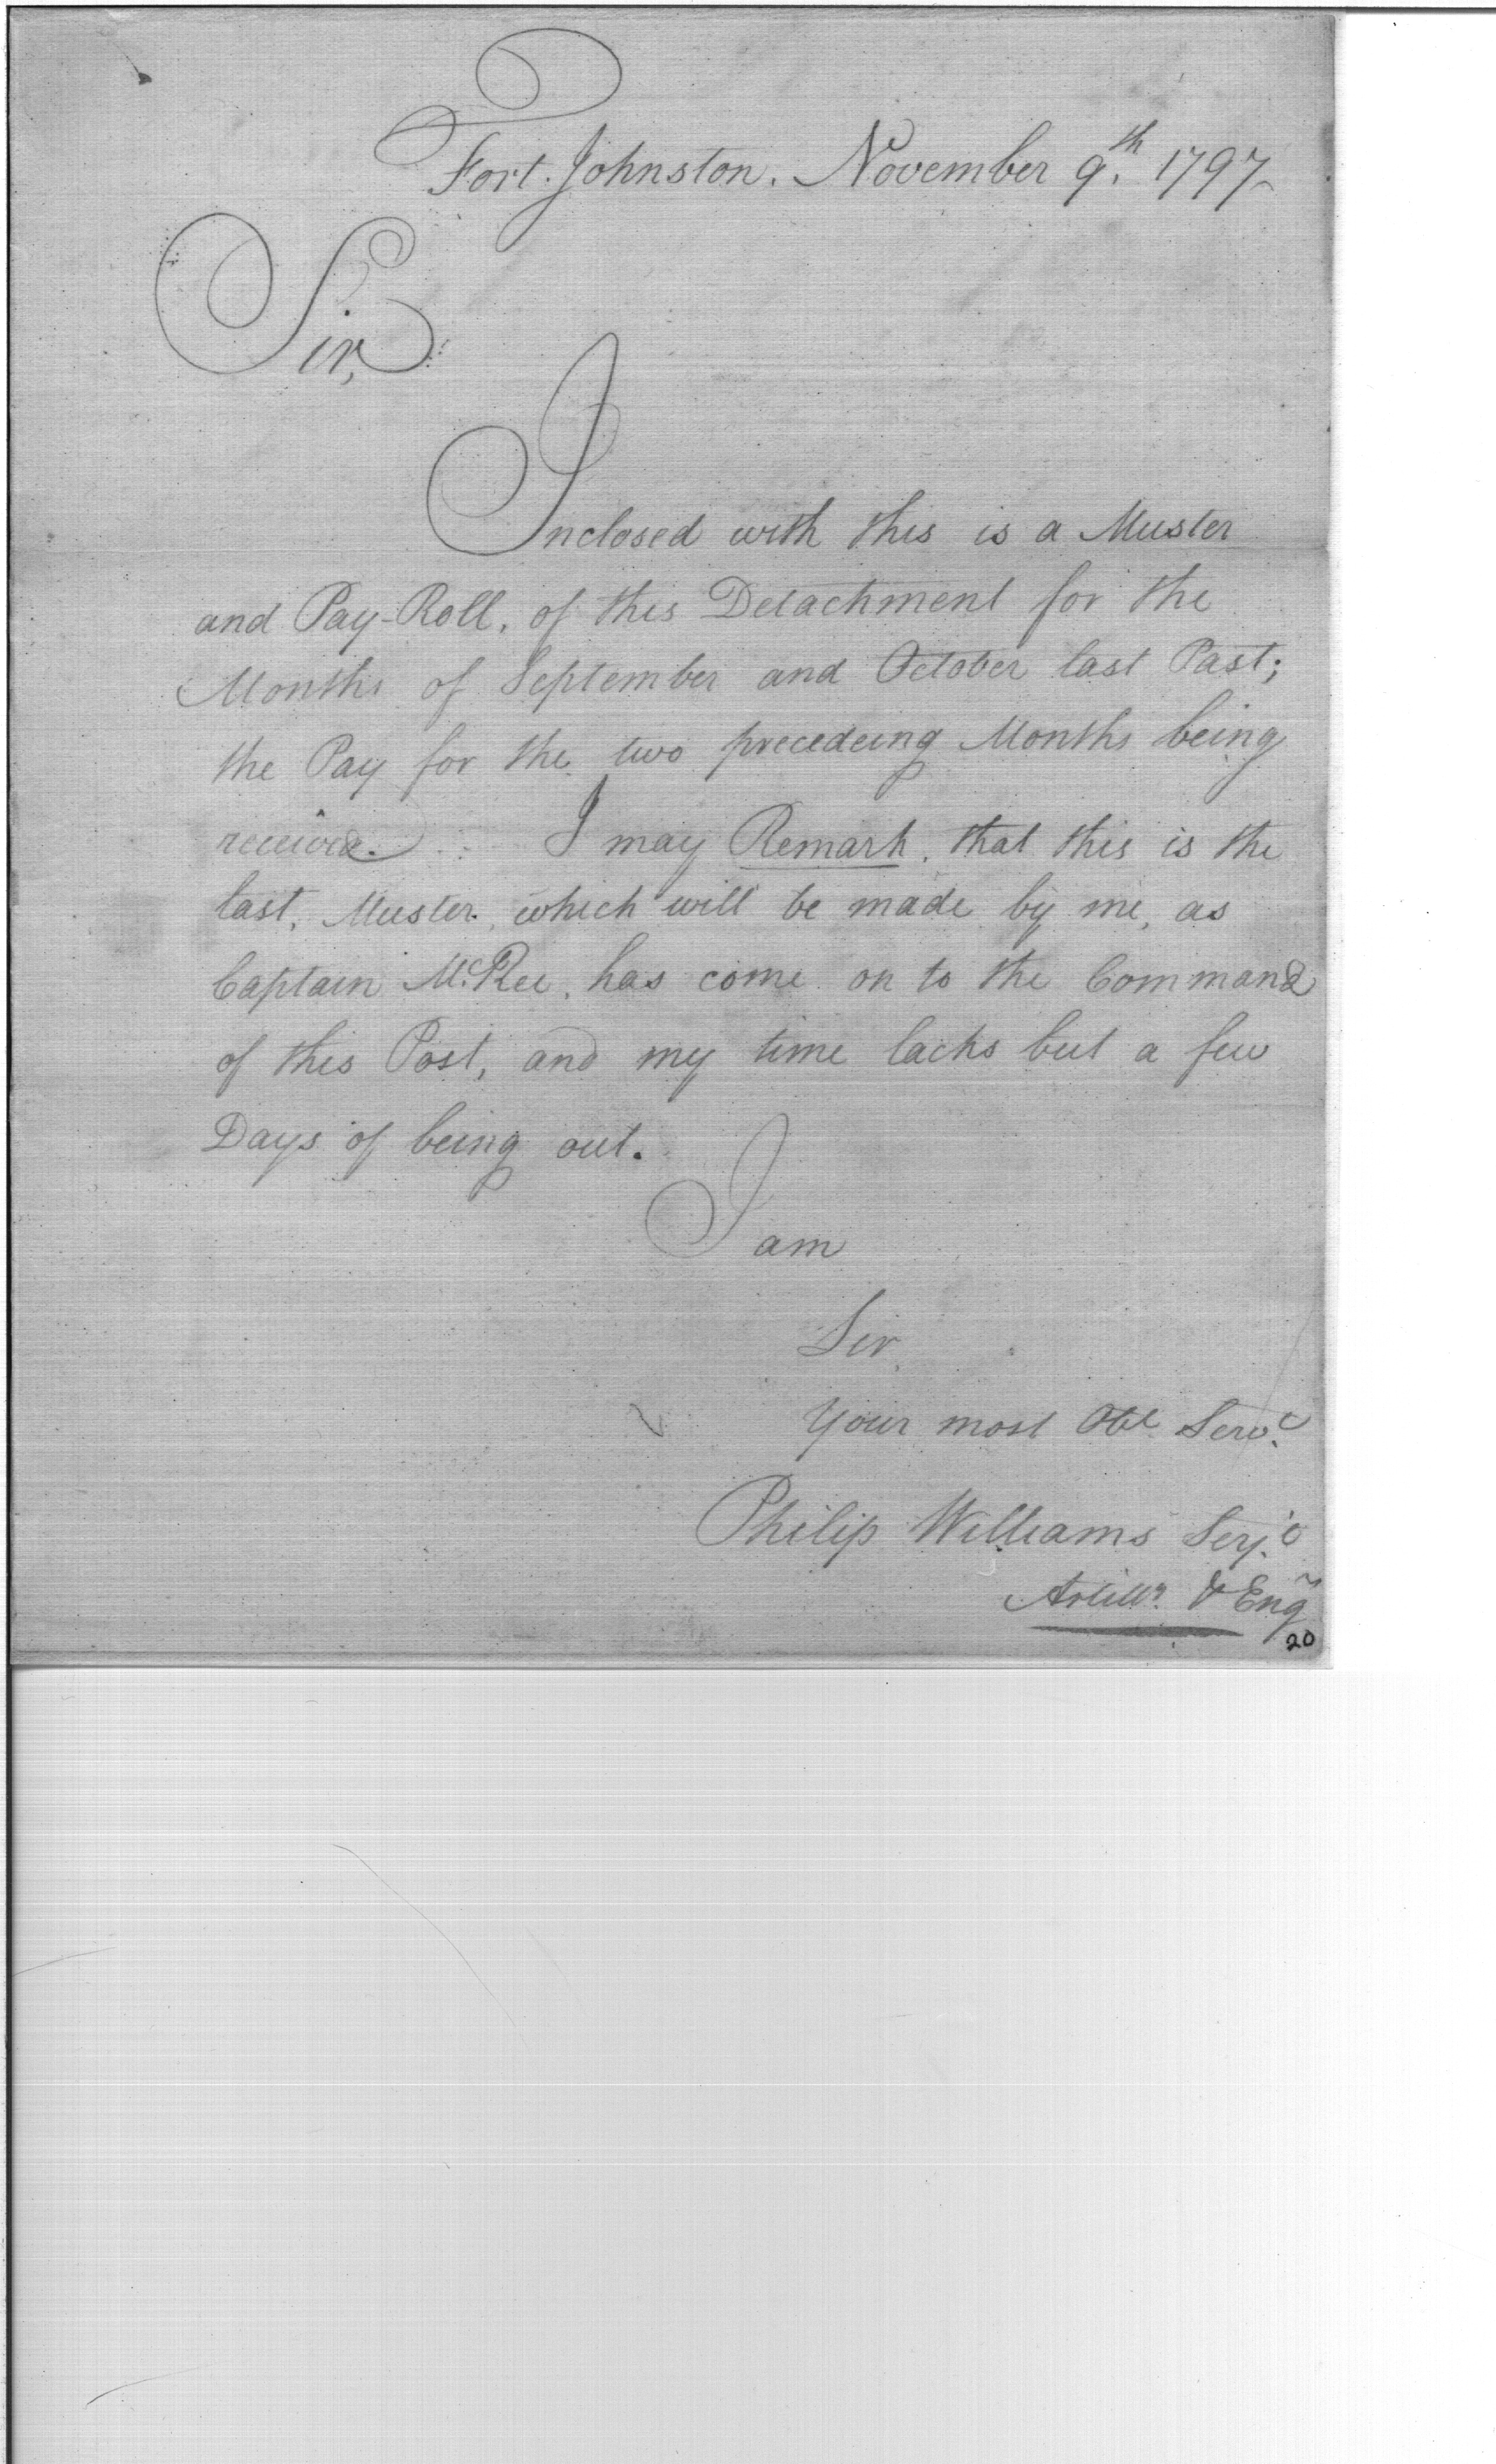 Fort Johnston. November 9.th 1797
Sir,
Inclosed with this is a Muster
and Pay-Roll, of this Detachment for the
Months of September and October last Past;
the Pay for the two precedeing Months being
received. I may Remark, that this is the
last, Muster, which will be made by me, as
Captain Mc.Ree, has come on to the Command
of this Post, and my time lacks but a few
Days of being out.
I am
Sir,
Your most Obt Servt.
Philip Williams Serjt.
Artillr. & Eng
20